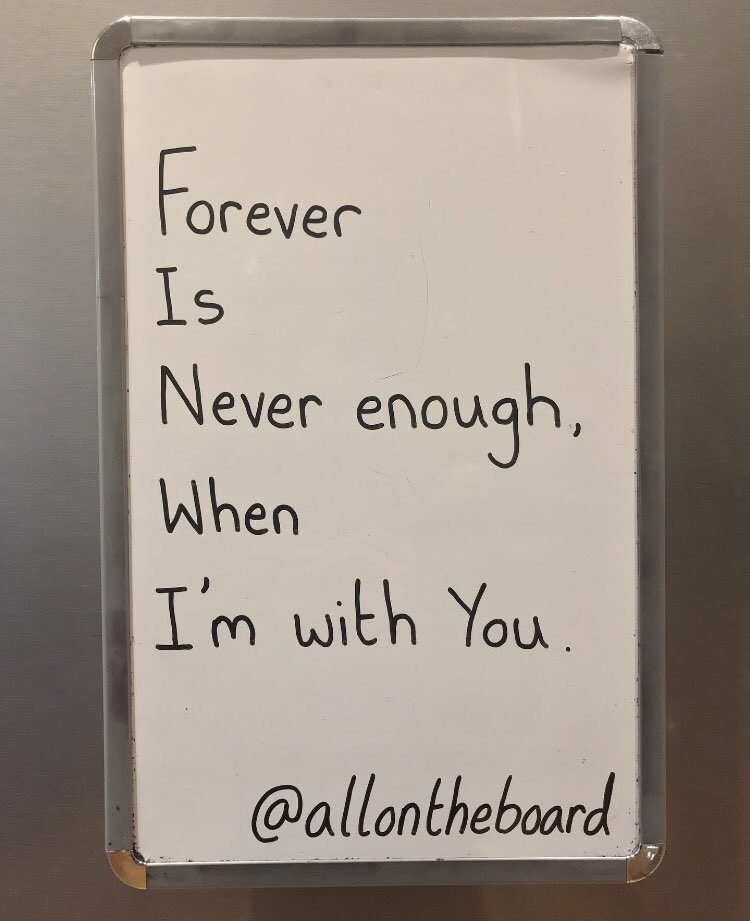 Forever
Is
Never enough,
When
I'm with You.
@allontheboard